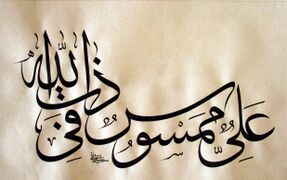 عَلِيٌّ مَمْسُوسٌ فِي ذَاتِ اللهِ